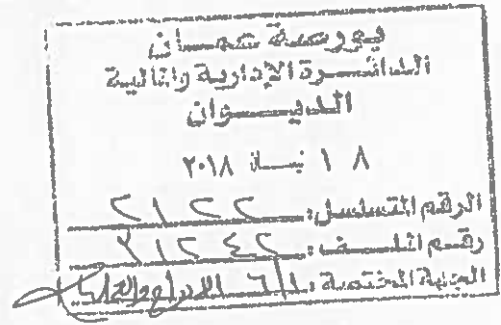 بورصة عمان
الدائرة الإدارية والمالية
الديوان
١٨ نيسان ٢٠١٨
الرقم المتسلسل: ٢١٢٢
رقم الملف:
الجهة المختصة: